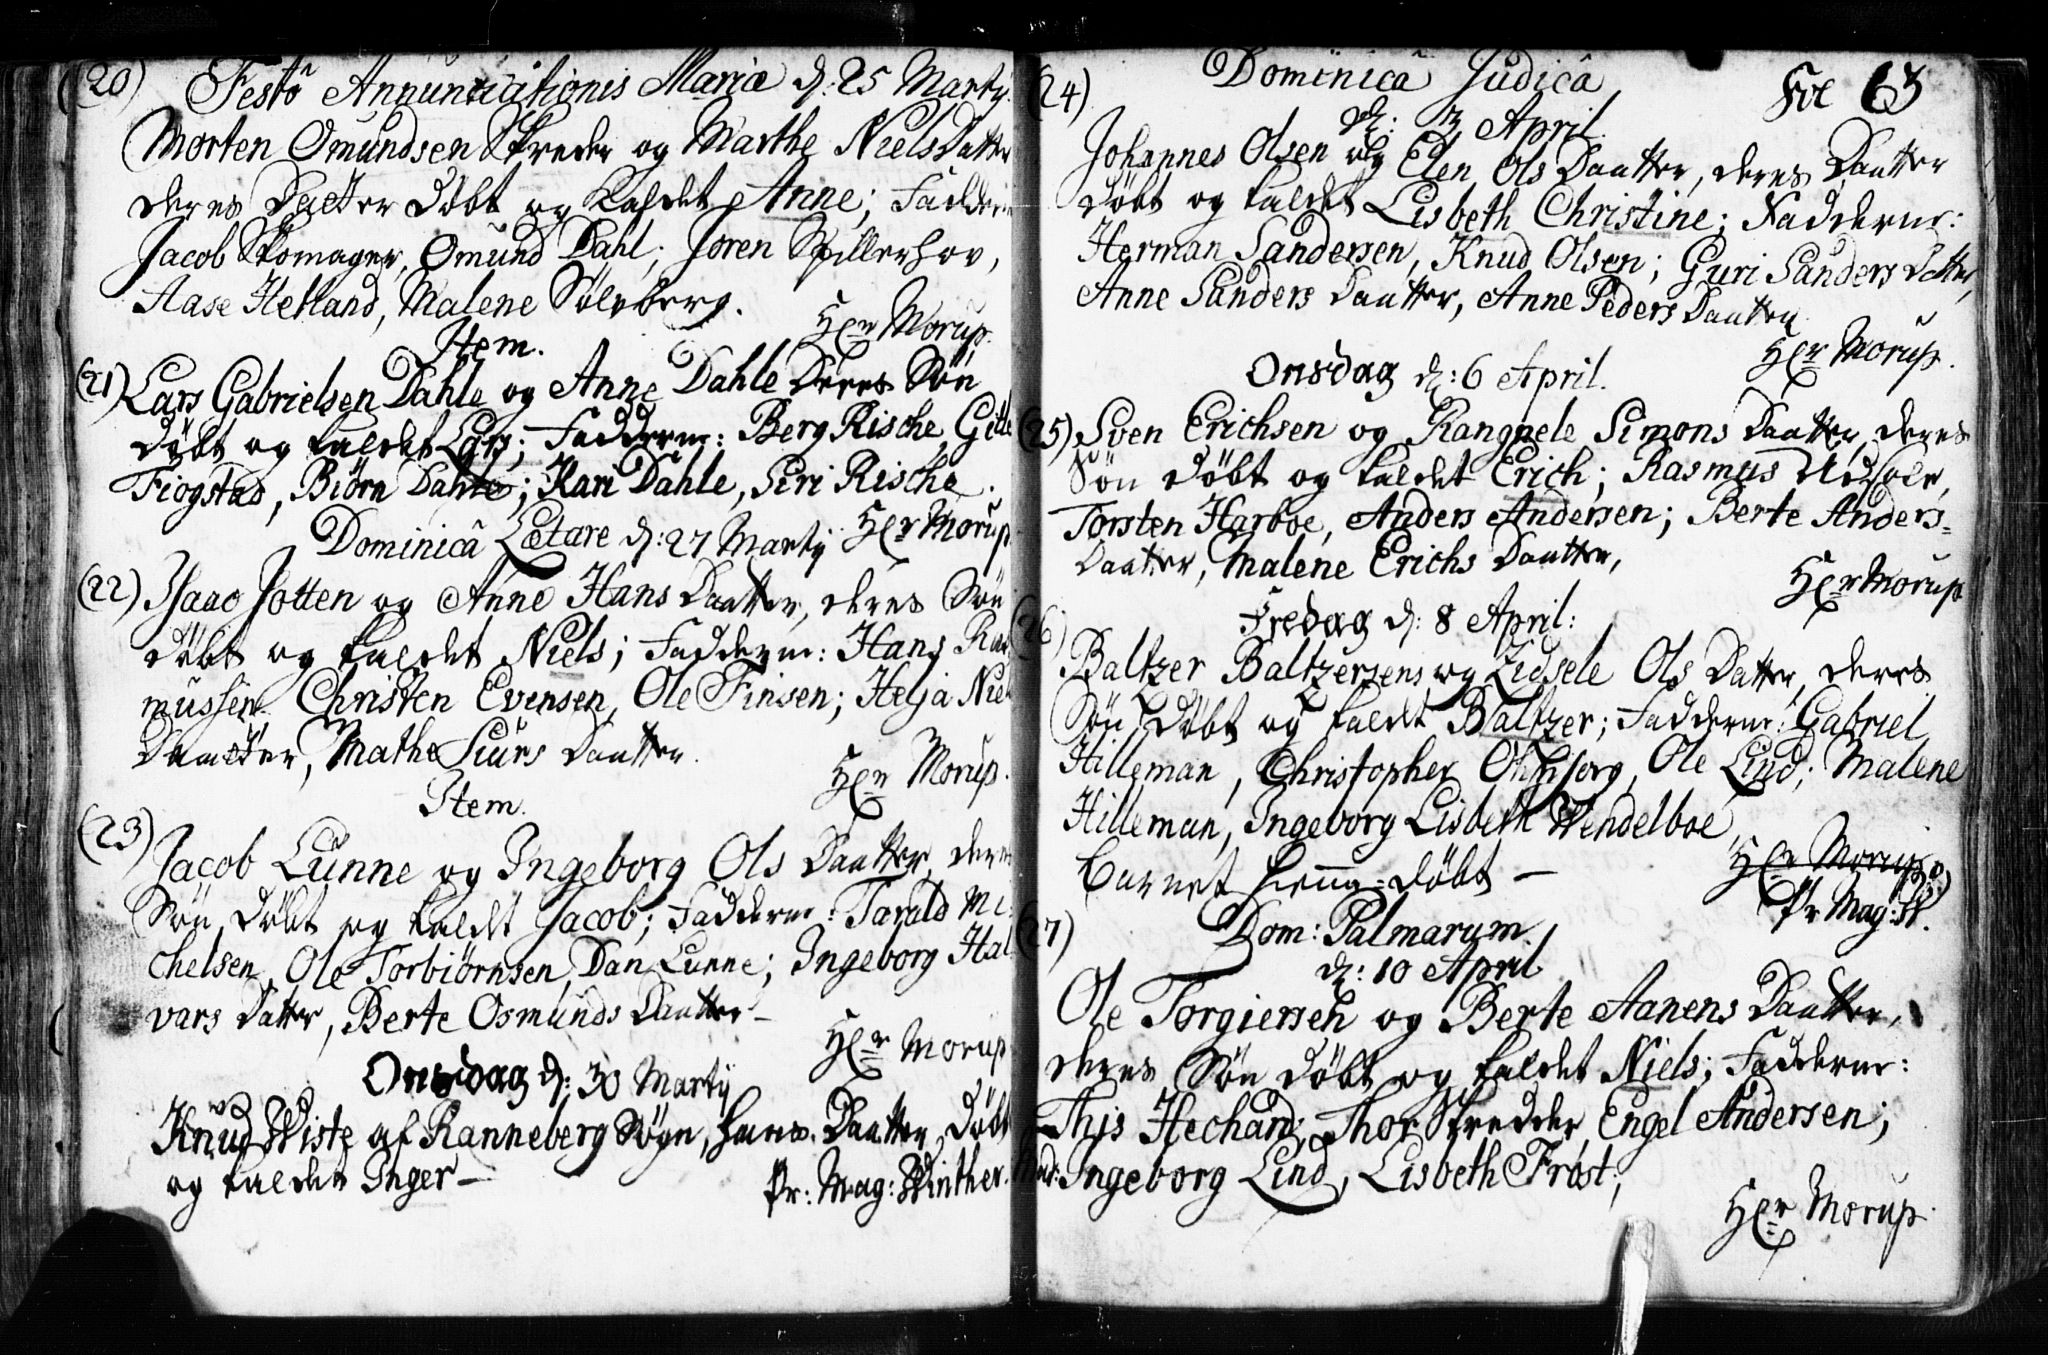 (20) Festô Annunciationis Mariæ d: 25 Martÿ.
Morten Omundsen Skreder og Marthe Niels Datter
deres Datter Døbt og Kaldet Anne; Faddern
Jacob Skomager, Omund Dahl; Joren Spillerhov,
Aase Hetland, Malene Sølvberg.
Her Morup.
Item.
(21) Lars Gabrielsen Dahle og Anne Dahle deres Søn
Døbt og kaldet Lars; Fadderne: Berg Rische, Gitle
Fiogstad, Biørn Dahle; Kari Dahle, Siri Rische.
Her Morup.
Dominicâ Lætare d: 27 Martÿ
(22) Isaac Jotten og Anne Hans Daatter, deres Søn
døbt og kaldet Niels; Fadderne: Hans Ras
mussen, Christen Evensen, Ole Finsen; Helja Niels
Daatter, Mathe Siurs Daatter.
Her Morup.
Item.
(23) Jacob Lunne og Ingeborg Ols Daatter, deres
Søn Døbt og kaldet Jacob; Fadderne: Tarald Mi-
chelsen, Ole Torbiørnsen, Dan Lunne; Ingeborg Hal
vars Datter, Berte Osmunds Daatter –
Her Morup
Onsdag d: 30 Martÿ
Knud Wiste af Ranneberg Søgn, hans Daatter Døbt
og kaldet Inger –
Pr: Mag: Winther.
Fol 63
(24) Dominicâ Judicâ
d: 3 April.
Johannes Olsen og Elen Ols Daatter, deres Daatter
døbt og kaldet Lisbeth Christine; Fadderne:
Herman Sandersen, Knud Olsen; Guri Sanders Datter,
Anne Sanders Daatter, Anne Peders Daatter
Her Morup.
Onsdag d: 6 April.
(25) Sven Erichsen og Rangnele Simons Daatter, deres
Søn døbt og kaldet Erich; Rasmus
Torsten Harboe, Anders Andersen; Berte Anders-
Daatter, Malene Erichs Daatter,
Her Morup
Fredag d: 8 April:
(26)
Baltzer Baltzersens og Zidsele Ols Datter, deres
Søn Døbt og kaldet Baltzer; Fadderne: Gabriel
Hilleman, Christopher Ole Lind; Malene
Hilleman, Ingeborg Lisbeth Wendelboe,
Barnet hiemme-døbt –
Her Morup
Pr Mag: W.
(27) Dom: Palmarum.
d: 10 April
Ole Torgiersen og Berte Aanens Daatter,
deres Søn døbt og kaldet Niels; Fadderne:
This Hechand, Thor Skredder, Engel Andersen;
Mad: Ingeborg Lind, Lisbeth Frost;
Her Morup.